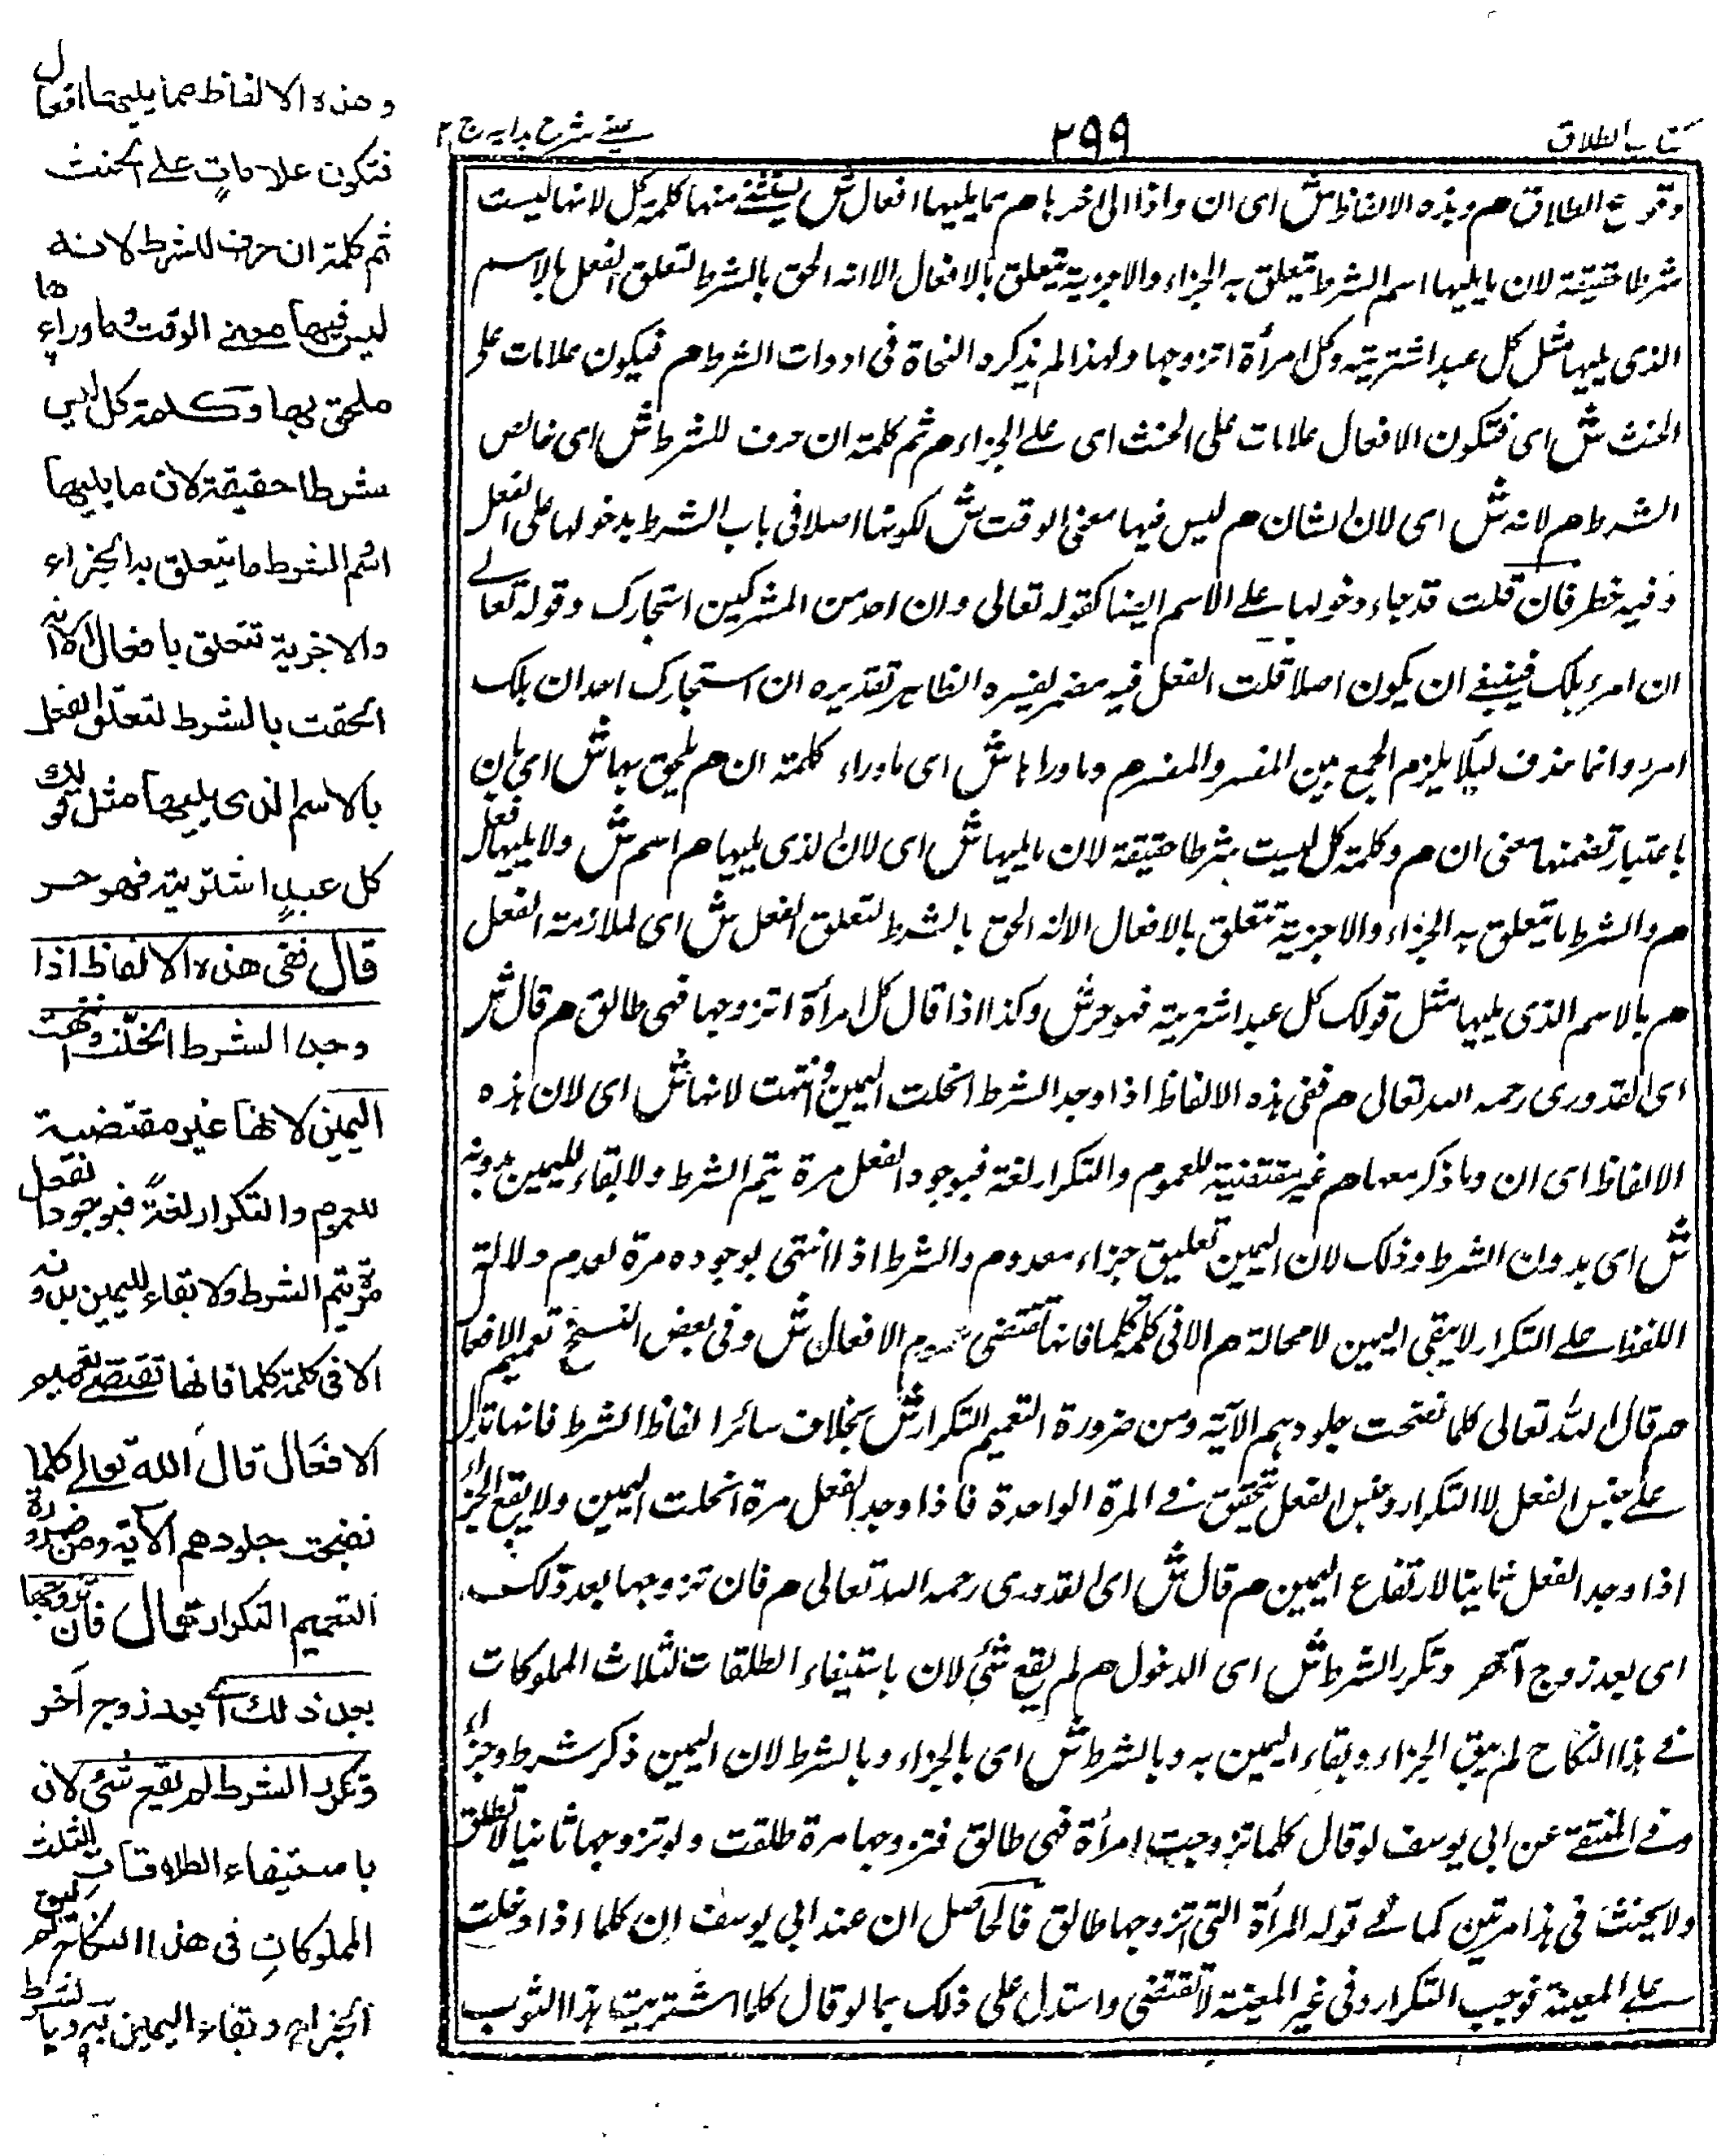 كتاب الطلاق
٢٩٩
عينى شرح هدايه ج ٢
وقوع الطلاق هم وهذه الالفاظ ش اى ان واذا الى اخرها هم مما يليها افعال ش يستثنى منها كلمة كل لانها ليست
شرطا حقيقة لان ما يليها اسم الشرط يتعلق به الجزاء والاجزية يتعلق بالافعال الا انه الحق بالشرط لتعلق الفعل بالاسم
الذى يليها مثل كل عبد اشتريته وكل امرأة اتزوجها ولهذا لم يذكره النحاة فى ادوات الشرط هم فيكون علامات على
الحنث ش اى فتكون الافعال علامات على الحنث اى على الجزاء هم ثم كلمة ان حرف للشرط ش اى خالص
الشرط هم لانه ش اى لان الشان هم ليس فيها معنى الوقت ش لكونها اصلا فى باب الشرط بدخولها على الفعل
وفيه خطر فان قلت قد جاء دخولها على الاسم ايضا كقوله تعالى وان احد من المشركين استجارك وقوله تعالى
ان امرء هلك فينبغى ان يكون اصلا قلت الفعل فيه مضمر يفسره الظاهر تقديره ان استجارك احد ان هلك
امرء وانما حذف ليلا يلزم الجمع بين المفسر والمفسر هم وما وراءها ش اى ما وراء كلمة ان هم ملحق بها ش اى بان
باعتبار تضمنها معنى ان هم وكلمة كل ليست بشرطا حقيقة لان ما يليها ش اى لان الذى يليها هم اسم ش ولا يليها فعل
هم والشرط ما يتعلق به الجزاء والاجزية تتعلق بالافعال الا انه الحق بالشرط لتعلق الفعل ش اى لملازمة الفعل
هم بالاسم الذى يليها مثل قولك كل عبد اشتريته فهو حر ش وكذا اذا قال كل امرأة اتزوجها فهى طالق هم قال ش
اى القدورى رحمه الله تعالى هم ففى هذه الالفاظ اذا وجد الشرط انحلت اليمين وانتهت لانها ش اى لان هذه
الالفاظ اى ان وما ذكر معها هم غير مقتضية للعموم والتكرار لغة فبوجود الفعل مرة يتم الشرط ولا بقاء لليمين بدونه
ش اى بدون الشرط وذلك لان اليمين تعليق جزاء معدوم والشرط اذا انتهى بوجوده مرة لعدم دلالة
اللفظ على التكرار لا يبقى اليمين لا محالة هم الا فى كلمة كلما فانها تقتضى عموم الافعال ش وفى بعض النسخ تعميم الافعال
هم قال الله تعالى كلما نضجت جلودهم الآية ومن ضرورة التعميم التكرار ش بخلاف سائر الفاظ الشرط فانها تدل
على جنس الفعل لا التكرار وجنس الفعل يتحقق فى المرة الواحدة فاذا وجد الفعل مرة انحلت اليمين ولا يقع الجزاء
اذا وجد الفعل ثانيا لارتفاع اليمين هم قال ش اى القدورى رحمه الله تعالى هم فان تزوجها بعد ذلك
اى بعد زوج آخر وتكرر الشرط ش اى الدخول هم لم يقع شئ لان باستيفاء الطلقات الثلاث المملوكات
فى هذا النكاح لم يبق الجزاء وبقاء اليمين به وبالشرط ش اى بالجزاء وبالشرط لان اليمين ذكر شرط وجزاء
وفى المنتقى عن ابى يوسف لو قال كلما تزوجت امرأة فهى طالق فتزوجها مرة طلقت ولو تزوجها ثانيا لا تطلق
ولا يحنث فى هذا مرتين كما فى قوله المرأة التى اتزوجها طالق فالحاصل ان عند ابى يوسف ان كلما اذا دخلت
على المعينة توجب التكرار وفى غير المعينة لا تقتضى واستدل على ذلك بما لو قال كلما اشتريت هذا الثوب
وهذه الالفاظ مما يليها افعال
فتكون علامات على الحنث
ثم كلمة ان حرف للشرط لانه
ليس فيها معنى الوقت وما وراءها
ملحق بها وكلمة كل ليس
شرطا حقيقة لان ما يليها
اسم الشرط ما يتعلق به الجزاء
والاجزية تتعلق بافعال الا انه
الحقت بالشرط لتعلق الفعل
بالاسم الذى يليها مثل قولك
كل عبد اشتريته فهو حر
قال ففى هذه الالفاظ اذا
وجد الشرط انحلت وانتهت
اليمين لانها غير مقتضية
للعموم والتكرار لغة فبوجود الفعل
مرة يتم الشرط ولا بقاء لليمين بدونه
الا فى كلمة كلما فانها تقتضى تعميم
الافعال قال الله تعالى كلما
نضجت جلودهم الآية ومن ضرورة
التعميم التكرار قال فان تزوجها
بعد ذلك اى بعد زوج آخر
وتكرر الشرط لم يقع شئ لان
باستيفاء الطلاقات الثلث
المملوكات فى هذا النكاح لم يبق
الجزاء وبقاء اليمين به وبالشرط